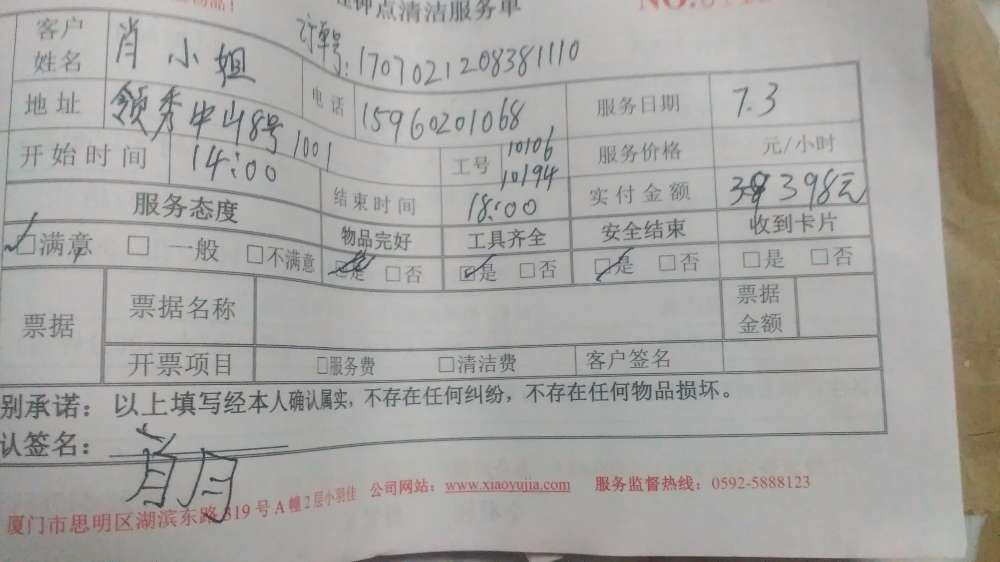 钟点清洁服务单 NO.
客户姓名 肖小姐 订单号:1707021208381110
地址 领秀中山8号1001 电话 15960201068 服务日期 7.3
开始时间 14:00 结束时间 18:00 工号 10106 10194 服务价格 元/小时
实付金额 398元
服务态度 物品完好 工具齐全 安全结束 收到卡片
☑满意 □一般 □不满意 ☑是 □否 ☑是 □否 ☑是 □否 □是 □否
票据 票据名称 票据金额
开票项目 □服务费 □清洁费 客户签名
别承诺：以上填写经本人确认属实，不存在任何纠纷，不存在任何物品损坏。
认签名：
厦门市思明区湖滨东路319号A幢2层小羽佳 公司网站：www.xiaoyujia.com 服务监督热线：0592-5888123